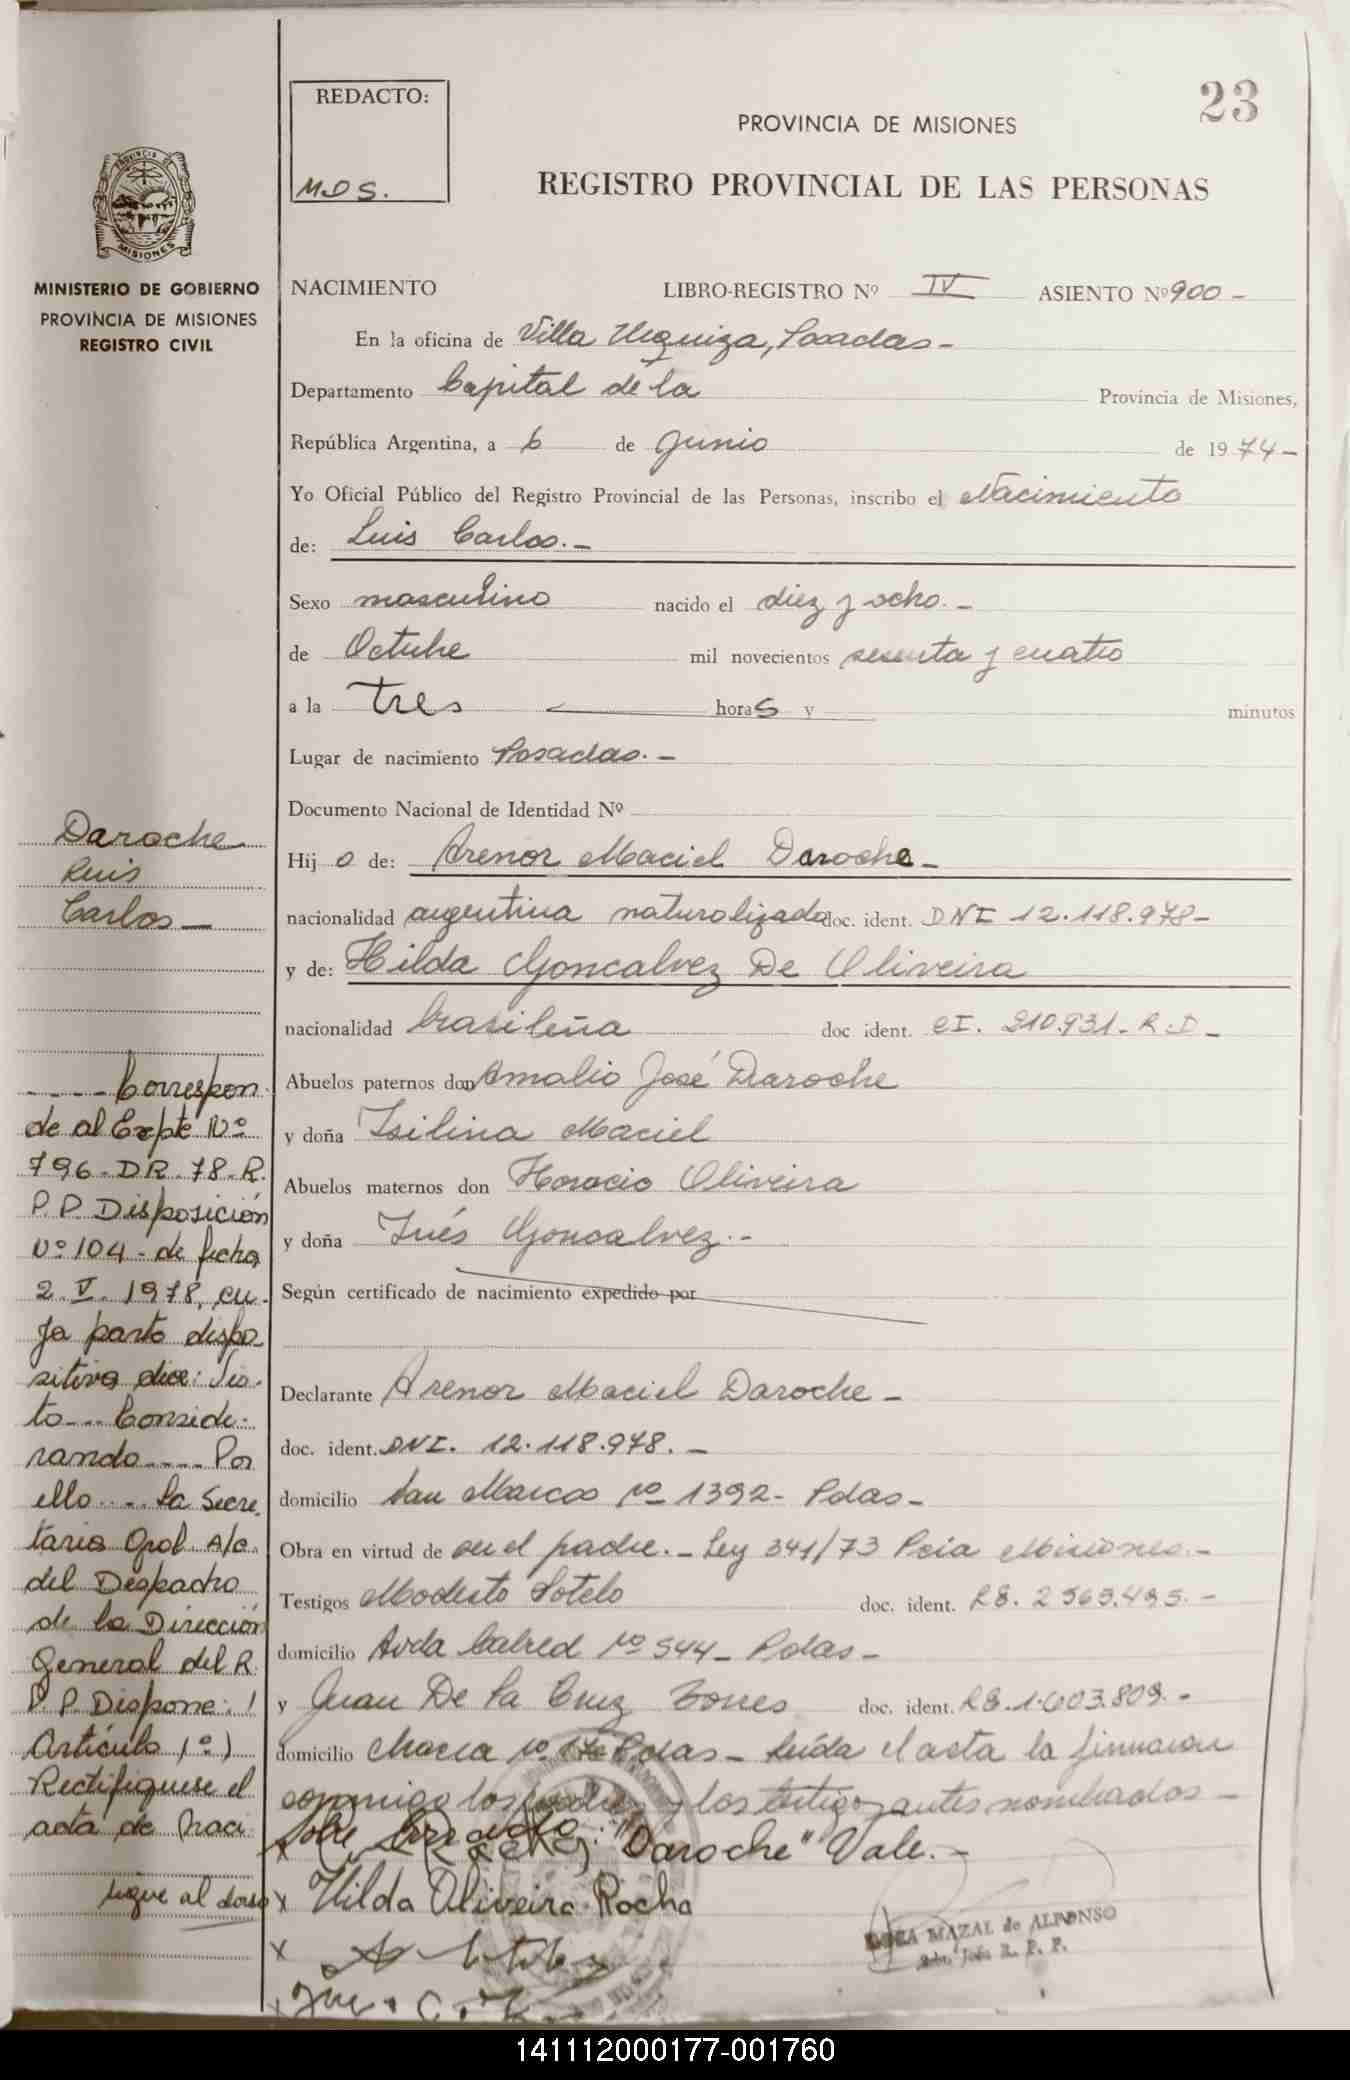 REDACTO:
M.D.S.
23
PROVINCIA DE MISIONES
REGISTRO PROVINCIAL DE LAS PERSONAS
PROVINCIA DE
MISIONES
MINISTERIO DE GOBIERNO
PROVINCIA DE MISIONES
REGISTRO CIVIL
NACIMIENTO LIBRO-REGISTRO Nº IV ASIENTO Nº 900 -
En la oficina de Villa Urquiza, Posadas -
Departamento Capital de la Provincia de Misiones,
República Argentina, a 6 de Junio de 1974 -
Yo Oficial Público del Registro Provincial de las Personas, inscribo el Nacimiento
de: Luis Carlos. -
Sexo masculino nacido el diez y ocho. -
de Octubre mil novecientos sesenta y cuatro
a la tres horas y minutos
Lugar de nacimiento Posadas. -
Documento Nacional de Identidad Nº
Hijo de: Arenor Maciel Daroche -
nacionalidad argentina naturalizado doc. ident. DNI 12.118.978 -
y de: Hilda Goncalvez De Oliveira
nacionalidad brasileña doc ident. CI. 210.931. R.D -
Abuelos paternos don Amalio José Daroche
y doña Isilina Maciel
Abuelos maternos don Horacio Oliveira
y doña Inés Goncalvez. -
Según certificado de nacimiento expedido por
Declarante Arenor Maciel Daroche -
doc. ident. DNI. 12.118.978. -
domicilio San Marcos Nº 1392 - Pdas -
Obra en virtud de ser el padre. - Ley 341/73 Pcia Misiones. -
Testigos Modesto Sotelo doc. ident. R8. 2565.495. -
domicilio Avda Cabred Nº 544 - Pdas -
y Juan De La Cruz Torres doc. ident. R8. 1.603.809. -
domicilio Chacra Nº Pdas - Leída el acta la firmaron
conmigo los padres y los testigos antes nombrados -
Sobre borrado: "Daroche" Vale. -
x Hilda Oliveira Rocha
x
x
MAZAL de ALFONSO
R. P. P.
Daroche
Luis
Carlos -
---- Correspon
de al Expte Nº
796 - DR - 78 - R.
P. P. Disposición
Nº 104 - de fecha
2. V. 1978, cu-
ya parte dispo-
sitiva dice: Vis-
to --- Conside-
rando ---- Por
ello --- La Secre-
taria Gral A/c.
del Despacho
de la Dirección
General del R.
P. P. Dispone:
Artículo 1º)
Rectifíquese el
acta de naci
sigue al dorso
141112000177-001760